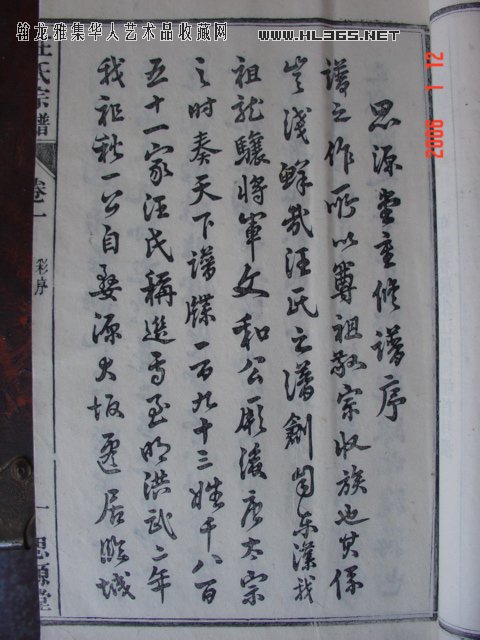 翰龙雅集华人艺术品收藏网
www.HL365.NET
21 1 2006
思源堂重修譜序
譜之作所以尊祖敬宗收族也其係
豈淺鮮哉汪氏之譜創自東漢我
祖龍驤將軍文和公厥後唐太宗
之時奏天下譜牒一百九十三姓千八百
五十一家汪氏稱進焉至明洪武二年
我祖秋一公自婺源大坂遷居臨城
汪氏宗譜
卷一
彩序
一
思源堂